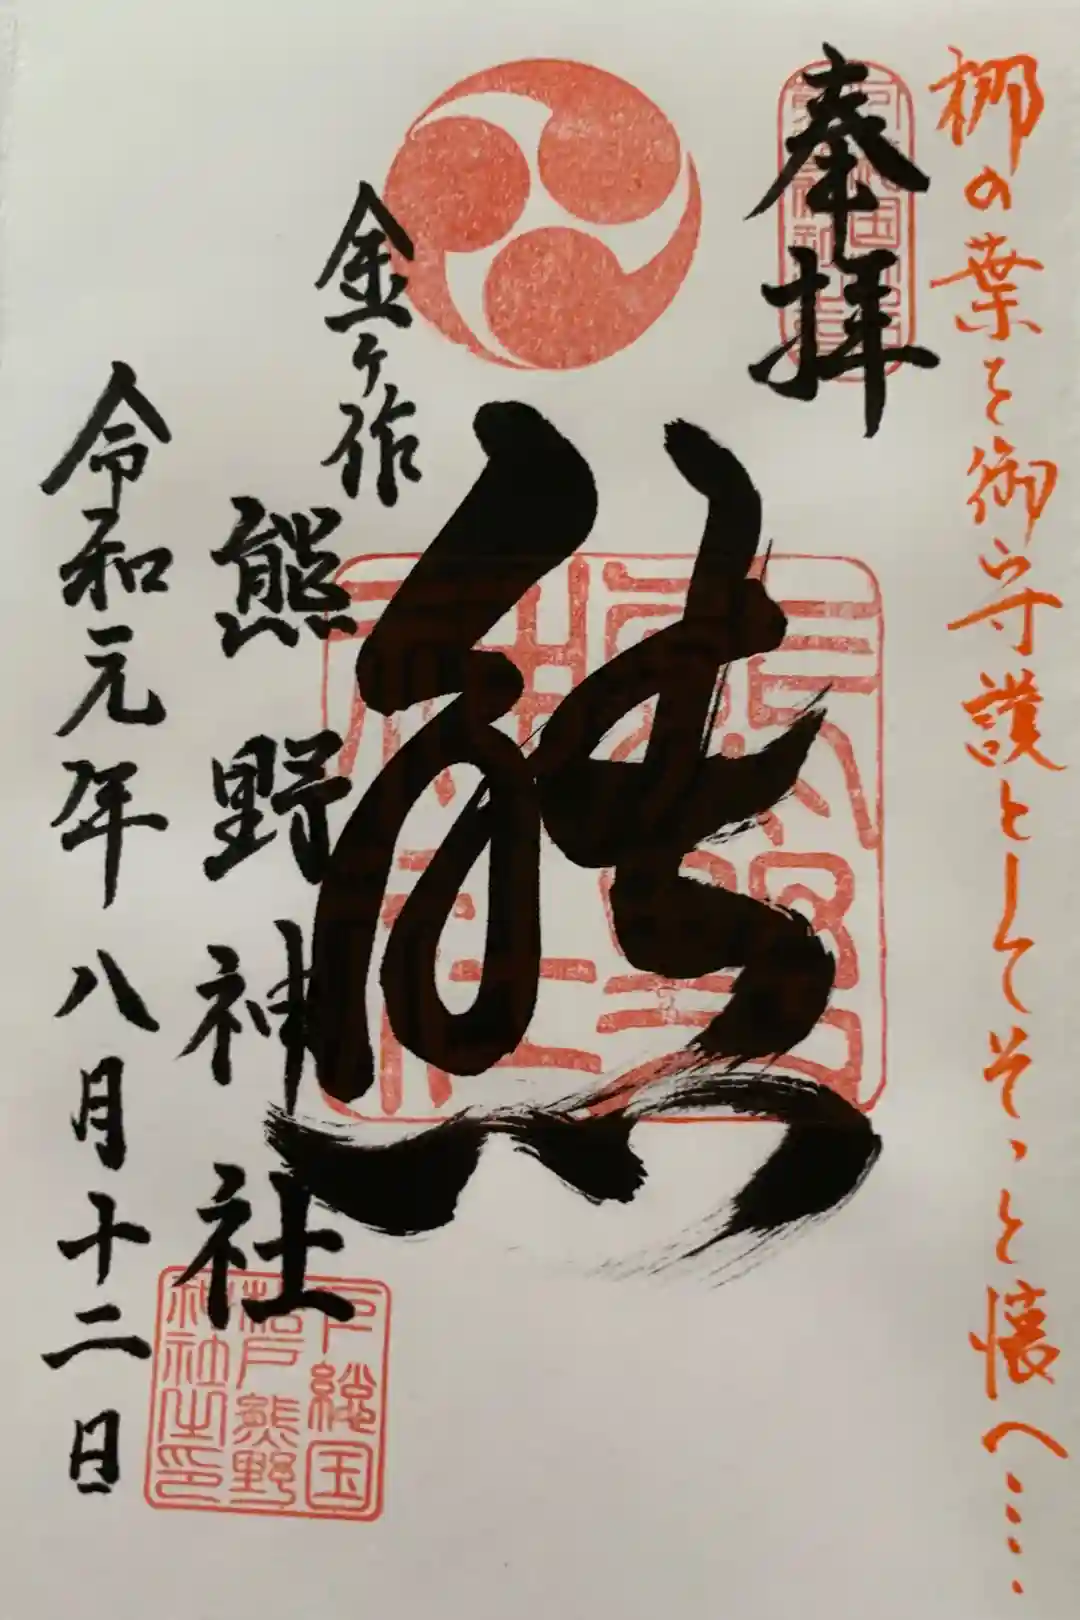 梛の葉を御守護としてそっと懐へ……
奉拝
熊
金ヶ作
熊野神社
令和元年八月十二日
下総国
松戸熊野
神社之印